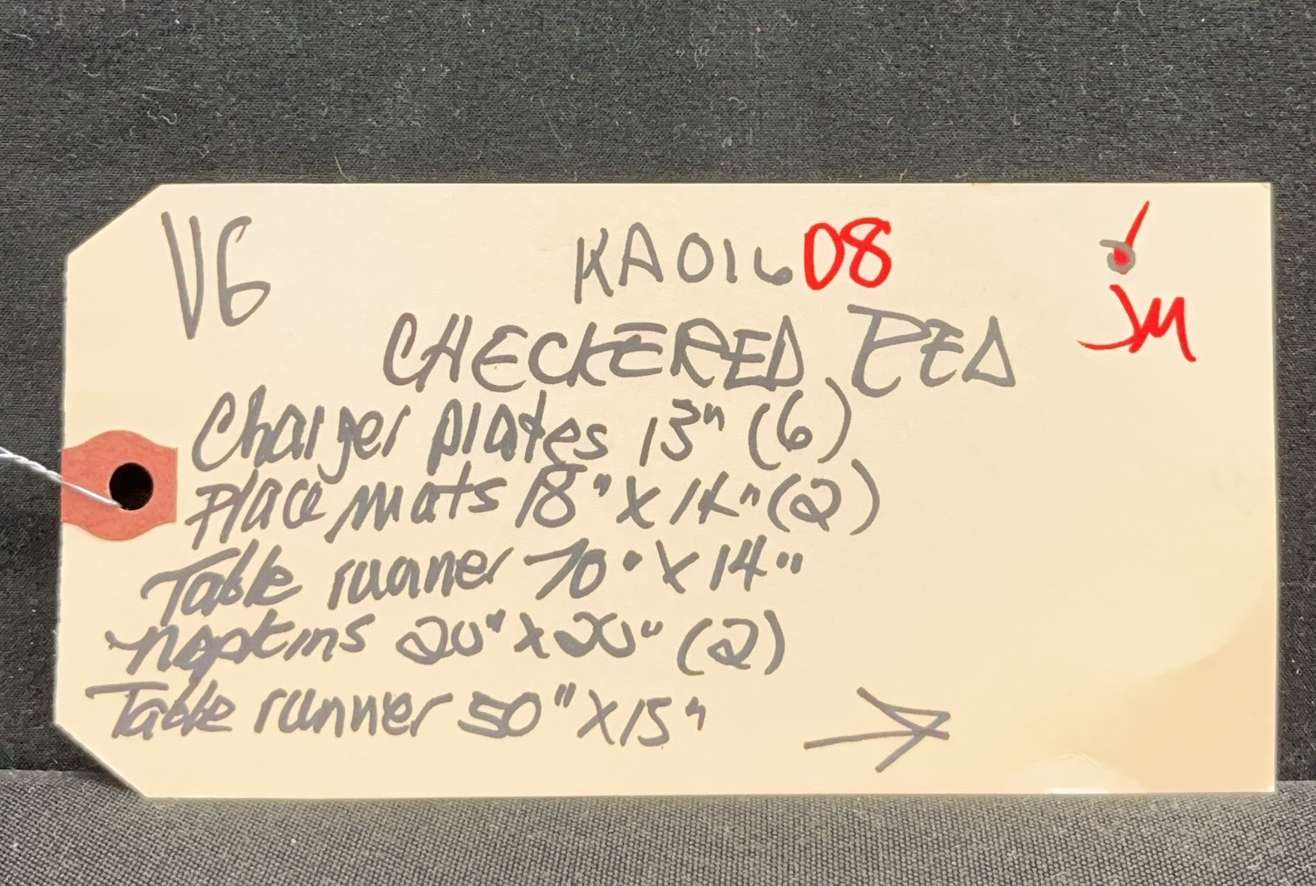 V6 KA01608 JM
CHECKERED RED
Charger plates 13" (6)
Place mats 18" X 14" (2)
Table runner 70" X 14"
napkins 20" X 20" (2)
Table runner 50" X 15"